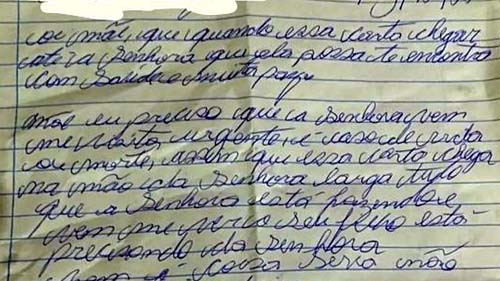 oi mãe, que quando essa carta chegar
ate a senhora que ela possa te encontra
com saúde e muita paz
mãe eu preciso que a senhora vem
me visita urgente, é caso de vida
ou morte, assim que essa carta chega
na mão da senhora larga tudo
que a senhora está fazendo e
vem me ver o seu filho está
precisando da senhora
coisa seria mão